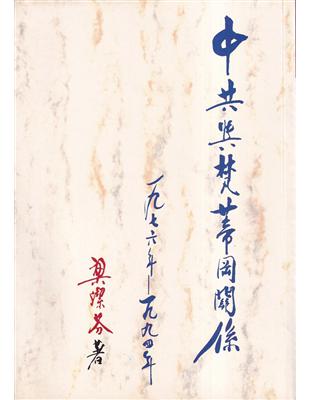 中共與梵蒂岡關係
一九七六年－一九九四年
梁燦芬著